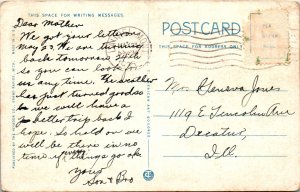 THIS SPACE FOR WRITING MESSAGES.
Dear Mother
We got your letter on
May 22. We are turning
back tomorrow 24th
so you can look for
us any time. The weather
has just turned good so
we will have a
better trip back I
hope. So hold on we
well be there in no
time if things go ok
Yours
Son &
POSTCARD
THIS SPACE FOR ADDRESS ONLY.
Mrs. Geneva Jones
1119 E Lincoln Ave
Decatur,
Ill.